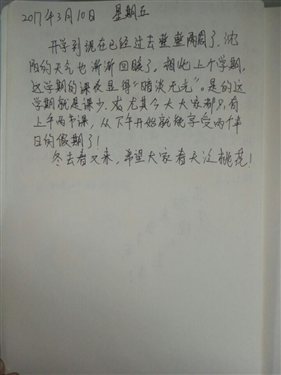 2017年3月10日 星期五
开学到现在已经过去整整两周了,沈
阳的天气也渐渐回暖了,相比上个学期,
这学期的课表显得"暗淡无光"。是的这
学期就是课少,尤其今天大家都只有
上午两节课,从下午开始就能享受两个半
日的假期了!
冬去春又来,希望大家春天泛桃花!